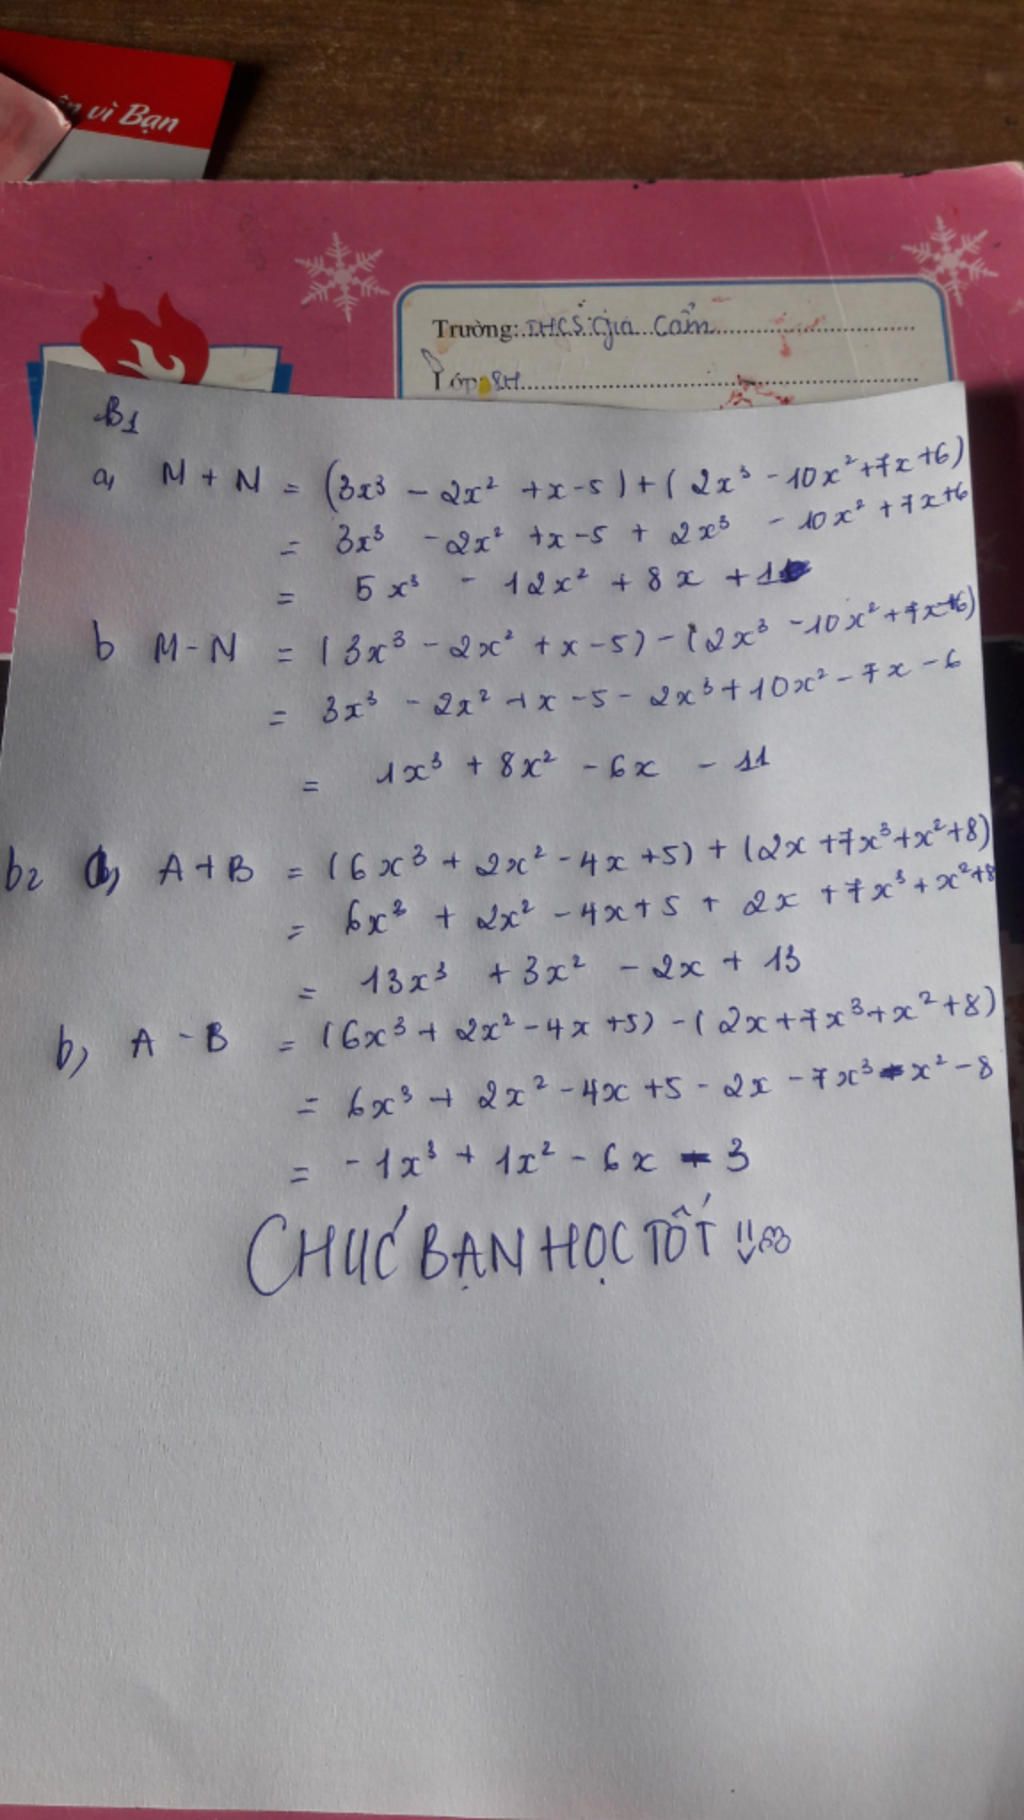 vì Bạn
Trường: THCS Gia Cẩm
Lớp: 8H
B1
a, M + N = (3x³ - 2x² + x - 5) + (2x³ - 10x² + 7x + 6)
= 3x³ - 2x² + x - 5 + 2x³ - 10x² + 7x + 6
= 5x³ - 12x² + 8x + 1
b M - N = (3x³ - 2x² + x - 5) - (2x³ - 10x² + 7x + 6)
= 3x³ - 2x² + x - 5 - 2x³ + 10x² - 7x - 6
= 1x³ + 8x² - 6x - 11
b2 a, A + B = (6x³ + 2x² - 4x + 5) + (2x + 7x³ + x² + 8)
= 6x³ + 2x² - 4x + 5 + 2x + 7x³ + x² + 8
= 13x³ + 3x² - 2x + 13
b, A - B = (6x³ + 2x² - 4x + 5) - (2x + 7x³ + x² + 8)
= 6x³ + 2x² - 4x + 5 - 2x - 7x³ - x² - 8
= -1x³ + 1x² - 6x - 3
CHÚC BẠN HỌC TỐT !!